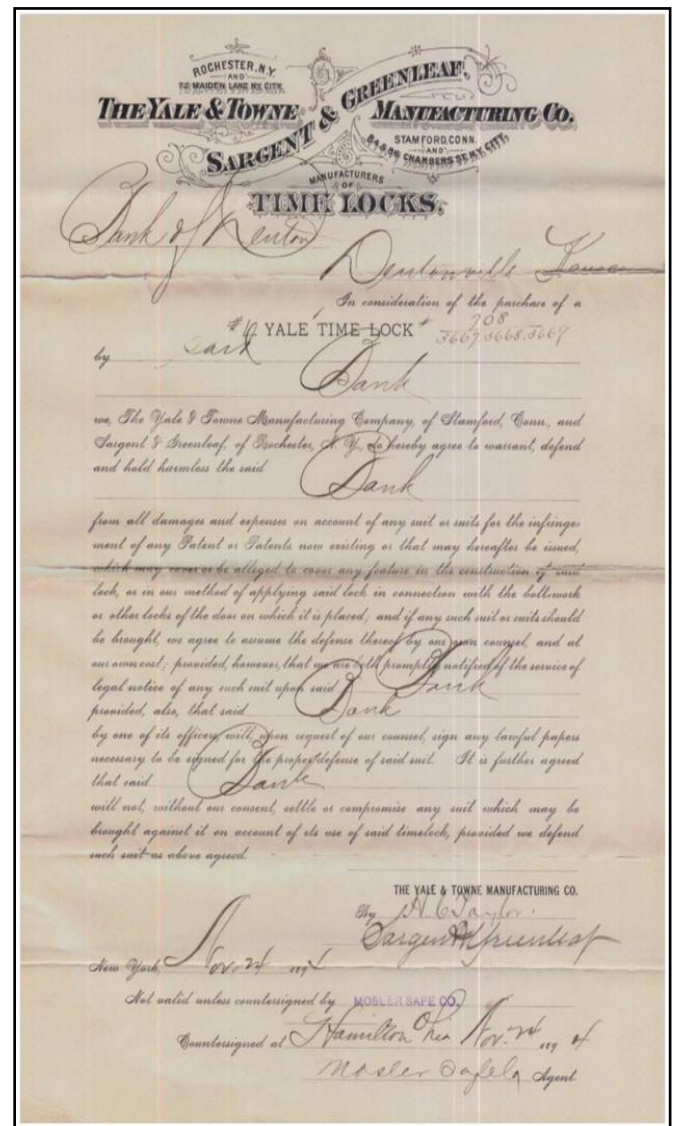 ROCHESTER, N.Y.
AND
72 MAIDEN LANE N.Y. CITY.
THE YALE & TOWNE MANUFACTURING CO.
SARGENT & GREENLEAF,
STAMFORD, CONN.
AND
84 & 86 CHAMBERS ST. N.Y. CITY.
MANUFACTURERS
OF
TIME LOCKS.
Bank of Denton
Dentonville Kansas
In consideration of the purchase of a
# YALE TIME LOCK # 208
3667.3668.3669
by said Bank
we, The Yale & Towne Manufacturing Company, of Stamford, Conn., and
Sargent & Greenleaf, of Rochester, N. Y., do hereby agree to warrant, defend
and hold harmless the said Bank
from all damages and expenses on account of any suit or suits for the infringe-
ment of any Patent or Patents now existing or that may hereafter be issued,
which may cover or be alleged to cover any feature in the construction of said
lock, or in our method of applying said lock in connection with the bolt-work
or other locks of the door on which it is placed; and if any such suit or suits should
be brought, we agree to assume the defense thereof by our own counsel, and at
our own cost; provided, however, that we are both promptly notified of the service of
legal notice of any such suit upon said Bank
provided, also, that said Bank
by one of its officers, will, upon request of our counsel, sign any lawful papers
necessary to be signed for the proper defense of said suit. It is further agreed
that said Bank
will not, without our consent, settle or compromise any suit which may be
brought against it on account of its use of said timelock, provided we defend
such suit as above agreed.
THE YALE & TOWNE MANUFACTURING CO.
By H. C. Taylor.
Sargent & Greenleaf
New York, Nov. 24 1894
Not valid unless countersigned by MOSLER SAFE CO.
Countersigned at Hamilton Ohio Nov. 24 1894
Mosler Safe Co Agent